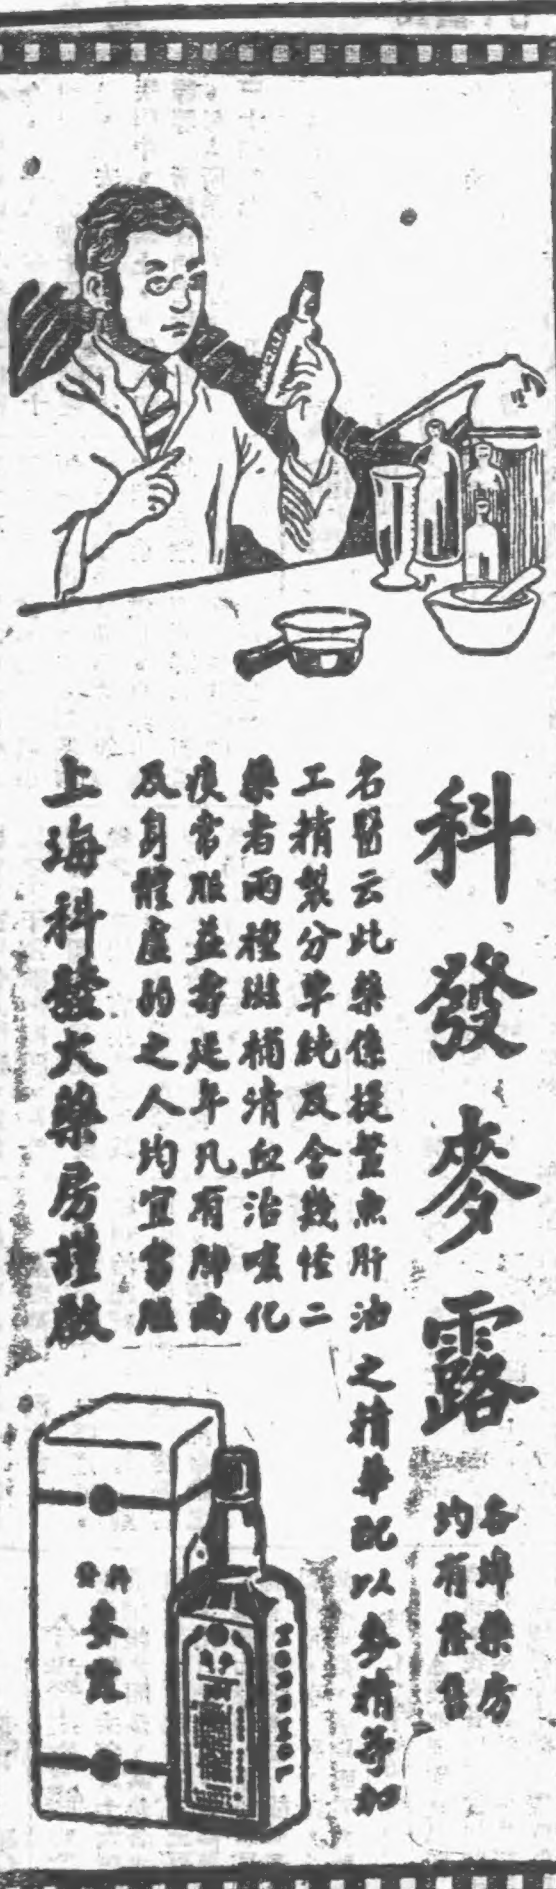 科發麥露
各埠藥房
均有售
名醫云此藥係提鰵魚肝油之精華配以麥精等加
工精製分單純及含幾怪二
藥者兩種滋補清血治咳化
痰常服益壽延年凡有肺癆
及身體虛弱之人均宜常服
上海科發大藥房謹啟
科發
麥露
MORRHOL